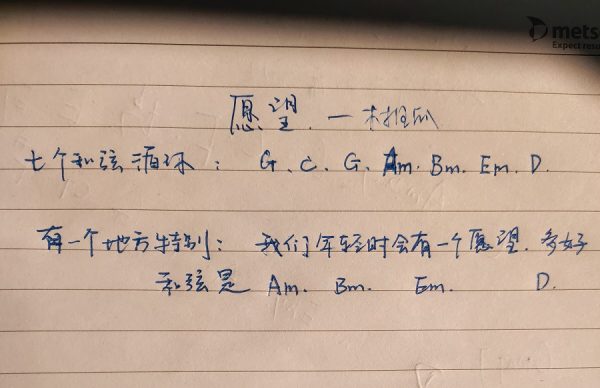 metso
Expect resu
愿望. 一木推瓜
七个和弦循环: G. C. G. Am. Bm. Em. D.
有一个地方特别: 我们年轻时会有一个愿望. 多好
和弦是 Am. Bm. Em. D.